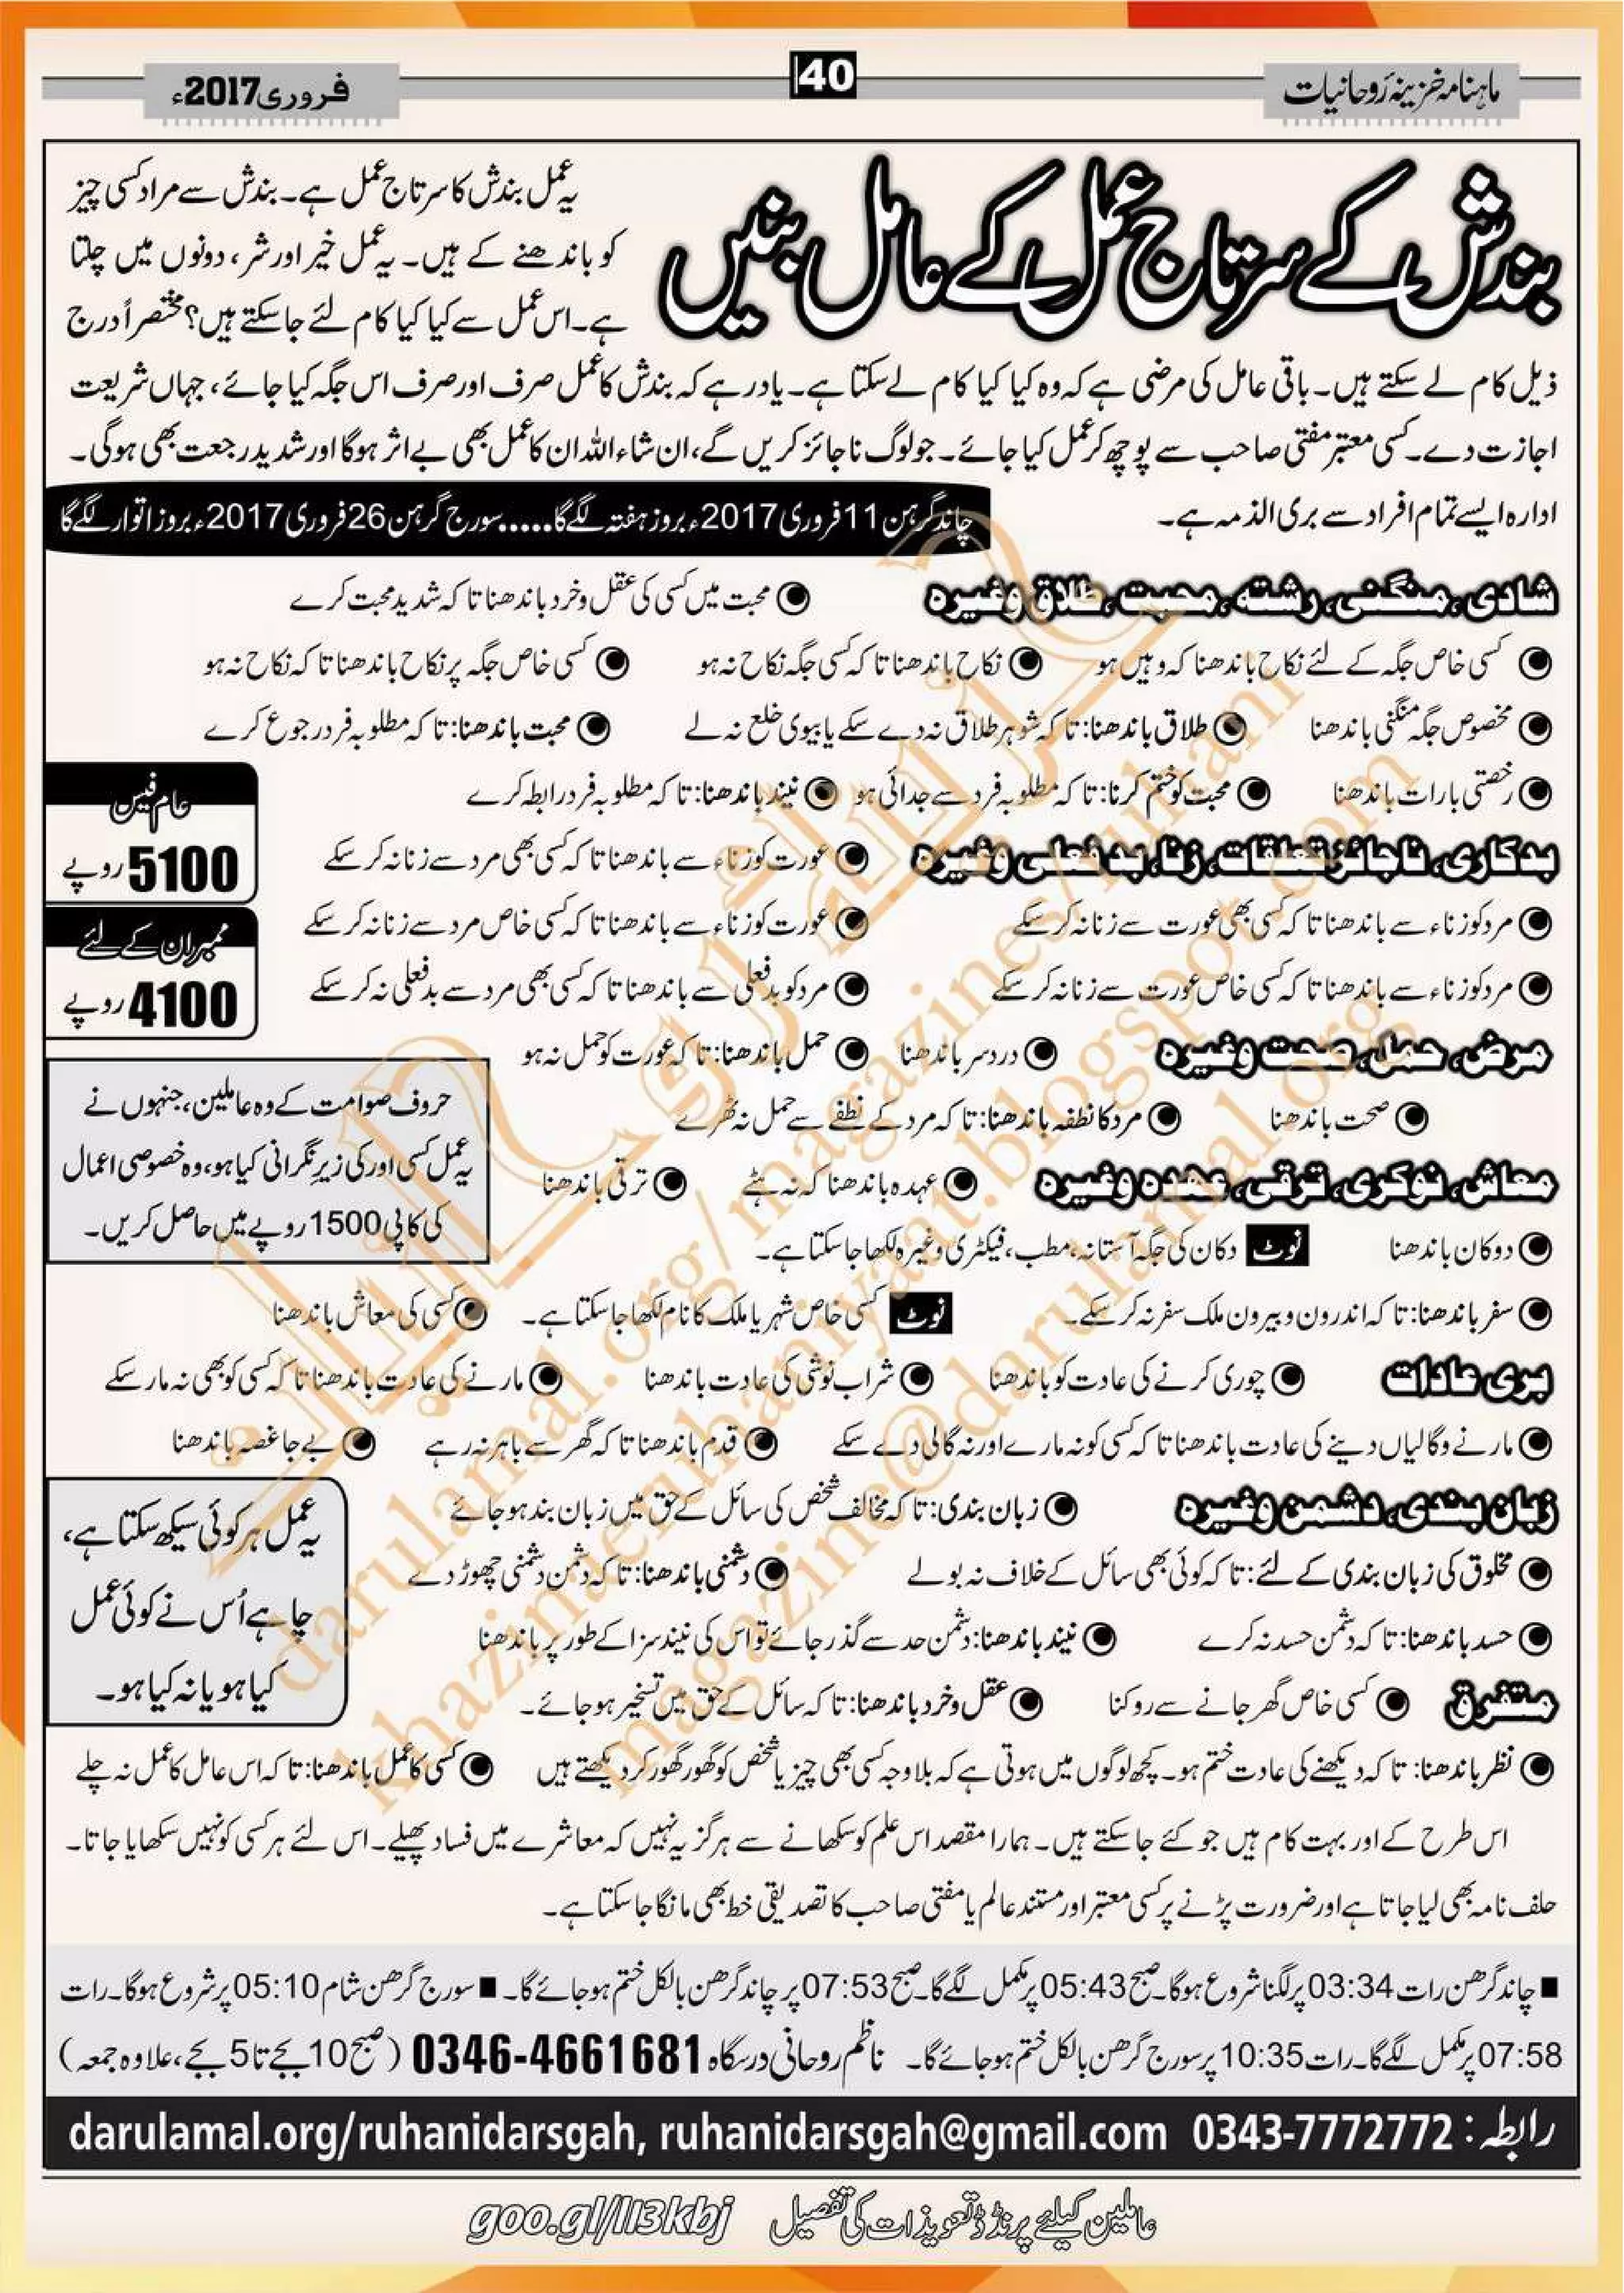 ماہنامہ خزینۂ روحانیات
40
فروری 2017ء
بندش کے سرتاج عمل کے عامل بنیں
یہ عمل بندش کا سرتاج عمل ہے۔ بندش سے مراد کسی چیز
کو باندھنے کے ہیں۔ یہ عمل خیر اور شر، دونوں میں چلتا
ہے۔ اس عمل سے کیا کیا کام لئے جا سکتے ہیں؟ مختصراً درج
ذیل کام لے سکتے ہیں۔ باقی عامل کی مرضی ہے کہ وہ کیا کیا کام لے سکتا ہے۔ یاد رہے کہ بندش کا عمل صرف اور صرف اس جگہ کیا جائے، جہاں شریعت
اجازت دے۔ کسی معتبر مفتی صاحب سے پوچھ کر عمل کیا جائے۔ جو لوگ ناجائز کریں گے، ان شاء اللہ ان کا عمل بھی بے اثر ہوگا اور شدید رجعت بھی ہوگی۔
ادارہ ایسے تمام افراد سے بری الذمہ ہے۔
چاند گرہن 11 فروری 2017ء بروز ہفتہ لگے گا.....سورج گرہن 26 فروری 2017ء بروز اتوار لگے گا
شادی، منگنی، رشتہ، محبت، طلاق وغیرہ ◉ محبت میں کسی کی عقل و خرد باندھنا تا کہ شدید محبت کرے
◉ کسی خاص جگہ کے لئے نکاح باندھنا کہ وہیں ہو ◉ نکاح باندھنا تا کہ کسی جگہ نکاح نہ ہو ◉ کسی خاص جگہ پر نکاح باندھنا تا کہ نکاح نہ ہو
◉ مخصوص جگہ منگنی باندھنا ◉ طلاق باندھنا: تا کہ شوہر طلاق نہ دے سکے یا بیوی خلع نہ لے ◉ محبت باندھنا: تا کہ مطلوبہ فرد رجوع کرے
◉ رخصتی بارات باندھنا ◉ محبت کو ختم کرنا: تا کہ مطلوبہ فرد سے جدائی ہو ◉ نیند باندھنا: تا کہ مطلوبہ فرد رابطہ کرے
عام فیس
5100 روپے
ممبران کے لئے
4100 روپے
بدکاری، ناجائز تعلقات، زنا، بد فعلی وغیرہ ◉ عورت کو زناء سے باندھنا تا کہ کسی بھی مرد سے زنا نہ کر سکے
◉ مرد کو زناء سے باندھنا تا کہ کسی بھی عورت سے زنا نہ کر سکے ◉ عورت کو زناء سے باندھنا تا کہ کسی خاص مرد سے زنا نہ کر سکے
◉ مرد کو زناء سے باندھنا تا کہ کسی خاص عورت سے زنا نہ کر سکے ◉ مرد کو بدفعلی سے باندھنا تا کہ کسی بھی مرد سے بدفعلی نہ کر سکے
مرض، حمل، صحت وغیرہ ◉ درد سر باندھنا ◉ حمل باندھنا: تا کہ عورت کو حمل نہ ہو
◉ صحت باندھنا ◉ مرد کا نطفہ باندھنا: تا کہ مرد کے نطفے سے حمل نہ ٹھہرے
حروف صوامت کے وہ عاملین، جنہوں نے
یہ عمل کسی اور کی زیرِ نگرانی کیا ہو، وہ خصوصی اعمال
کی کاپی 1500 روپے میں حاصل کریں۔
معاش، نوکری، ترقی، عہدہ وغیرہ ◉ عہدہ باندھنا کہ نہ ہٹے ◉ ترقی باندھنا
◉ دوکان باندھنا نوٹ دکان کی جگہ آستانہ، مطب، فیکٹری وغیرہ لکھا جا سکتا ہے۔
◉ سفر باندھنا: تا کہ اندرون و بیرون ملک سفر نہ کر سکے۔ نوٹ کسی خاص شہر یا ملک کا نام لکھا جا سکتا ہے۔ ◉ کسی کی معاش باندھنا
بری عادات ◉ چوری کرنے کی عادت کو باندھنا ◉ شراب نوشی کی عادت باندھنا ◉ مارنے کی عادت باندھنا تا کہ کسی کو بھی نہ مار سکے
◉ مارنے و گالیاں دینے کی عادت باندھنا تا کہ کسی کو نہ مارے اور نہ گالی دے سکے ◉ قدم باندھنا تا کہ گھر سے باہر نہ رہے ◉ بے جا غصہ باندھنا
زبان بندی، دشمن وغیرہ ◉ زبان بندی: تا کہ مخالف شخص کی سائل کے حق میں زبان بند ہو جائے
◉ مخلوق کی زبان بندی کے لئے: تا کہ کوئی بھی سائل کے خلاف نہ بولے ◉ دشمنی باندھنا: تا کہ دشمن دشمنی چھوڑ دے
◉ حسد باندھنا: تا کہ دشمن حسد نہ کرے ◉ نیند باندھنا: دشمن حد سے گذر جائے تو اس کی نیند سزا کے طور پر باندھنا
یہ عمل ہر کوئی سیکھ سکتا ہے،
چاہے اُس نے کوئی عمل
کیا ہو یا نہ کیا ہو۔
متفرق ◉ کسی خاص گھر جانے سے روکنا ◉ عقل و خرد باندھنا: تا کہ سائل کے حق میں تسخیر ہو جائے۔
◉ نظر باندھنا: تا کہ دیکھنے کی عادت ختم ہو۔ کچھ لوگوں میں ہوتی ہے کہ بلاوجہ کسی بھی چیز یا شخص کو گھور گھور کر دیکھتے ہیں ◉ کسی کا عمل باندھنا: تا کہ اس عامل کا عمل نہ چلے
اس طرح کے اور بہت کام ہیں جو کئے جا سکتے ہیں۔ ہمارا مقصد اس علم کو سکھانے سے ہرگز یہ نہیں کہ معاشرے میں فساد پھیلے۔ اس لئے ہر کسی کو نہیں سکھایا جاتا۔
حلف نامہ بھی لیا جاتا ہے اور ضرورت پڑنے پر کسی معتبر اور مستند عالم یا مفتی صاحب کا تصدیقی خط بھی مانگا جا سکتا ہے۔
■ چاند گرھن رات 03:34 پر لگنا شروع ہوگا۔ صبح 05:43 پر مکمل لگے گا۔ صبح 07:53 پر چاند گرھن بالکل ختم ہو جائے گا۔ ■ سورج گرھن شام 05:10 پر شروع ہوگا۔ رات
07:58 پر مکمل لگے گا۔ رات 10:35 پر سورج گرھن بالکل ختم ہو جائے گا۔ ناظم روحانی درسگاہ 0346-4661681 (صبح 10 بجے تا 5 بجے، علاوہ جمعہ)
رابطہ: 0343-7772772 darulamal.org/ruhanidarsgah, ruhanidarsgah@gmail.com
عاملین کیلئے پرنٹڈ تعویذات کی تفصیل goo.gl/Il3kbj
darulamal.org/magazines/ruhani
khazinaeruhaniyaat.blogspot.com
magazine@darulamal.org